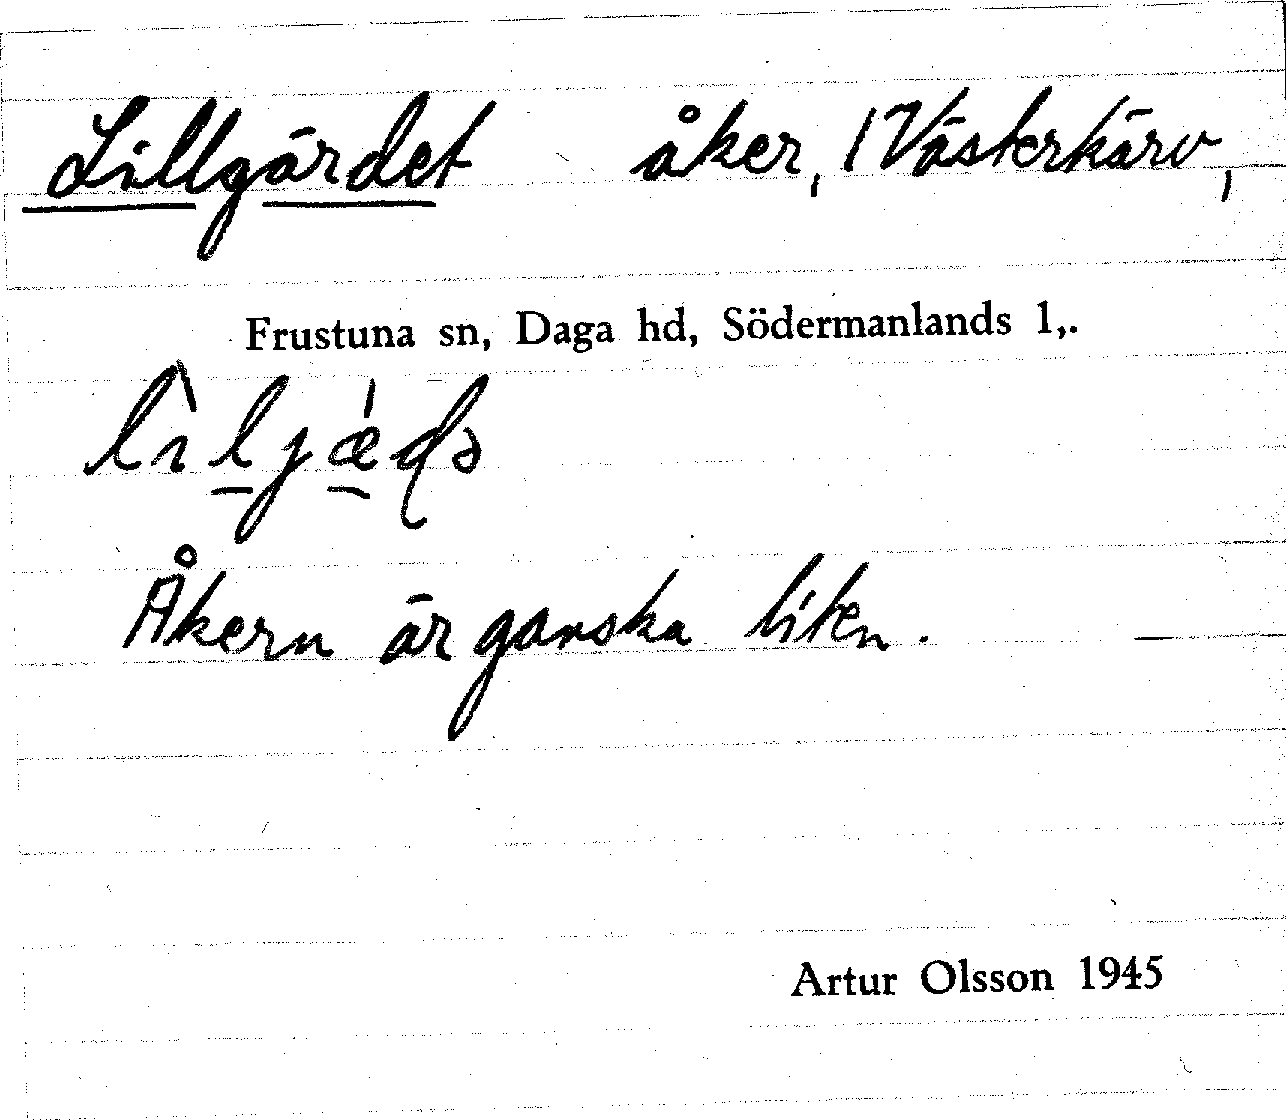 Lillgärdet åker, 1 Västerkärv,
Frustuna sn, Daga hd, Södermanlands l,.
Åkern är ganska liten. —
Artur Olsson 1945